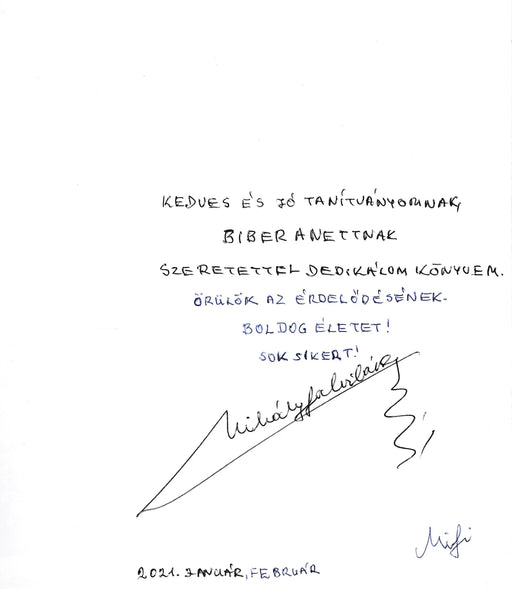 KEDVES ÉS JÓ TANÍTVÁNYOMNAK,
BIBER ANETTNAK
SZERETETTEL DEDIKÁLOM KÖNYVEM.
ÖRÜLÖK AZ ÉRDELŐDÉSÉNEK.
BOLDOG ÉLETET!
SOK SIKERT!
Mihályfalvi
Mifi
2021. JANUÁR, FEBRUÁR